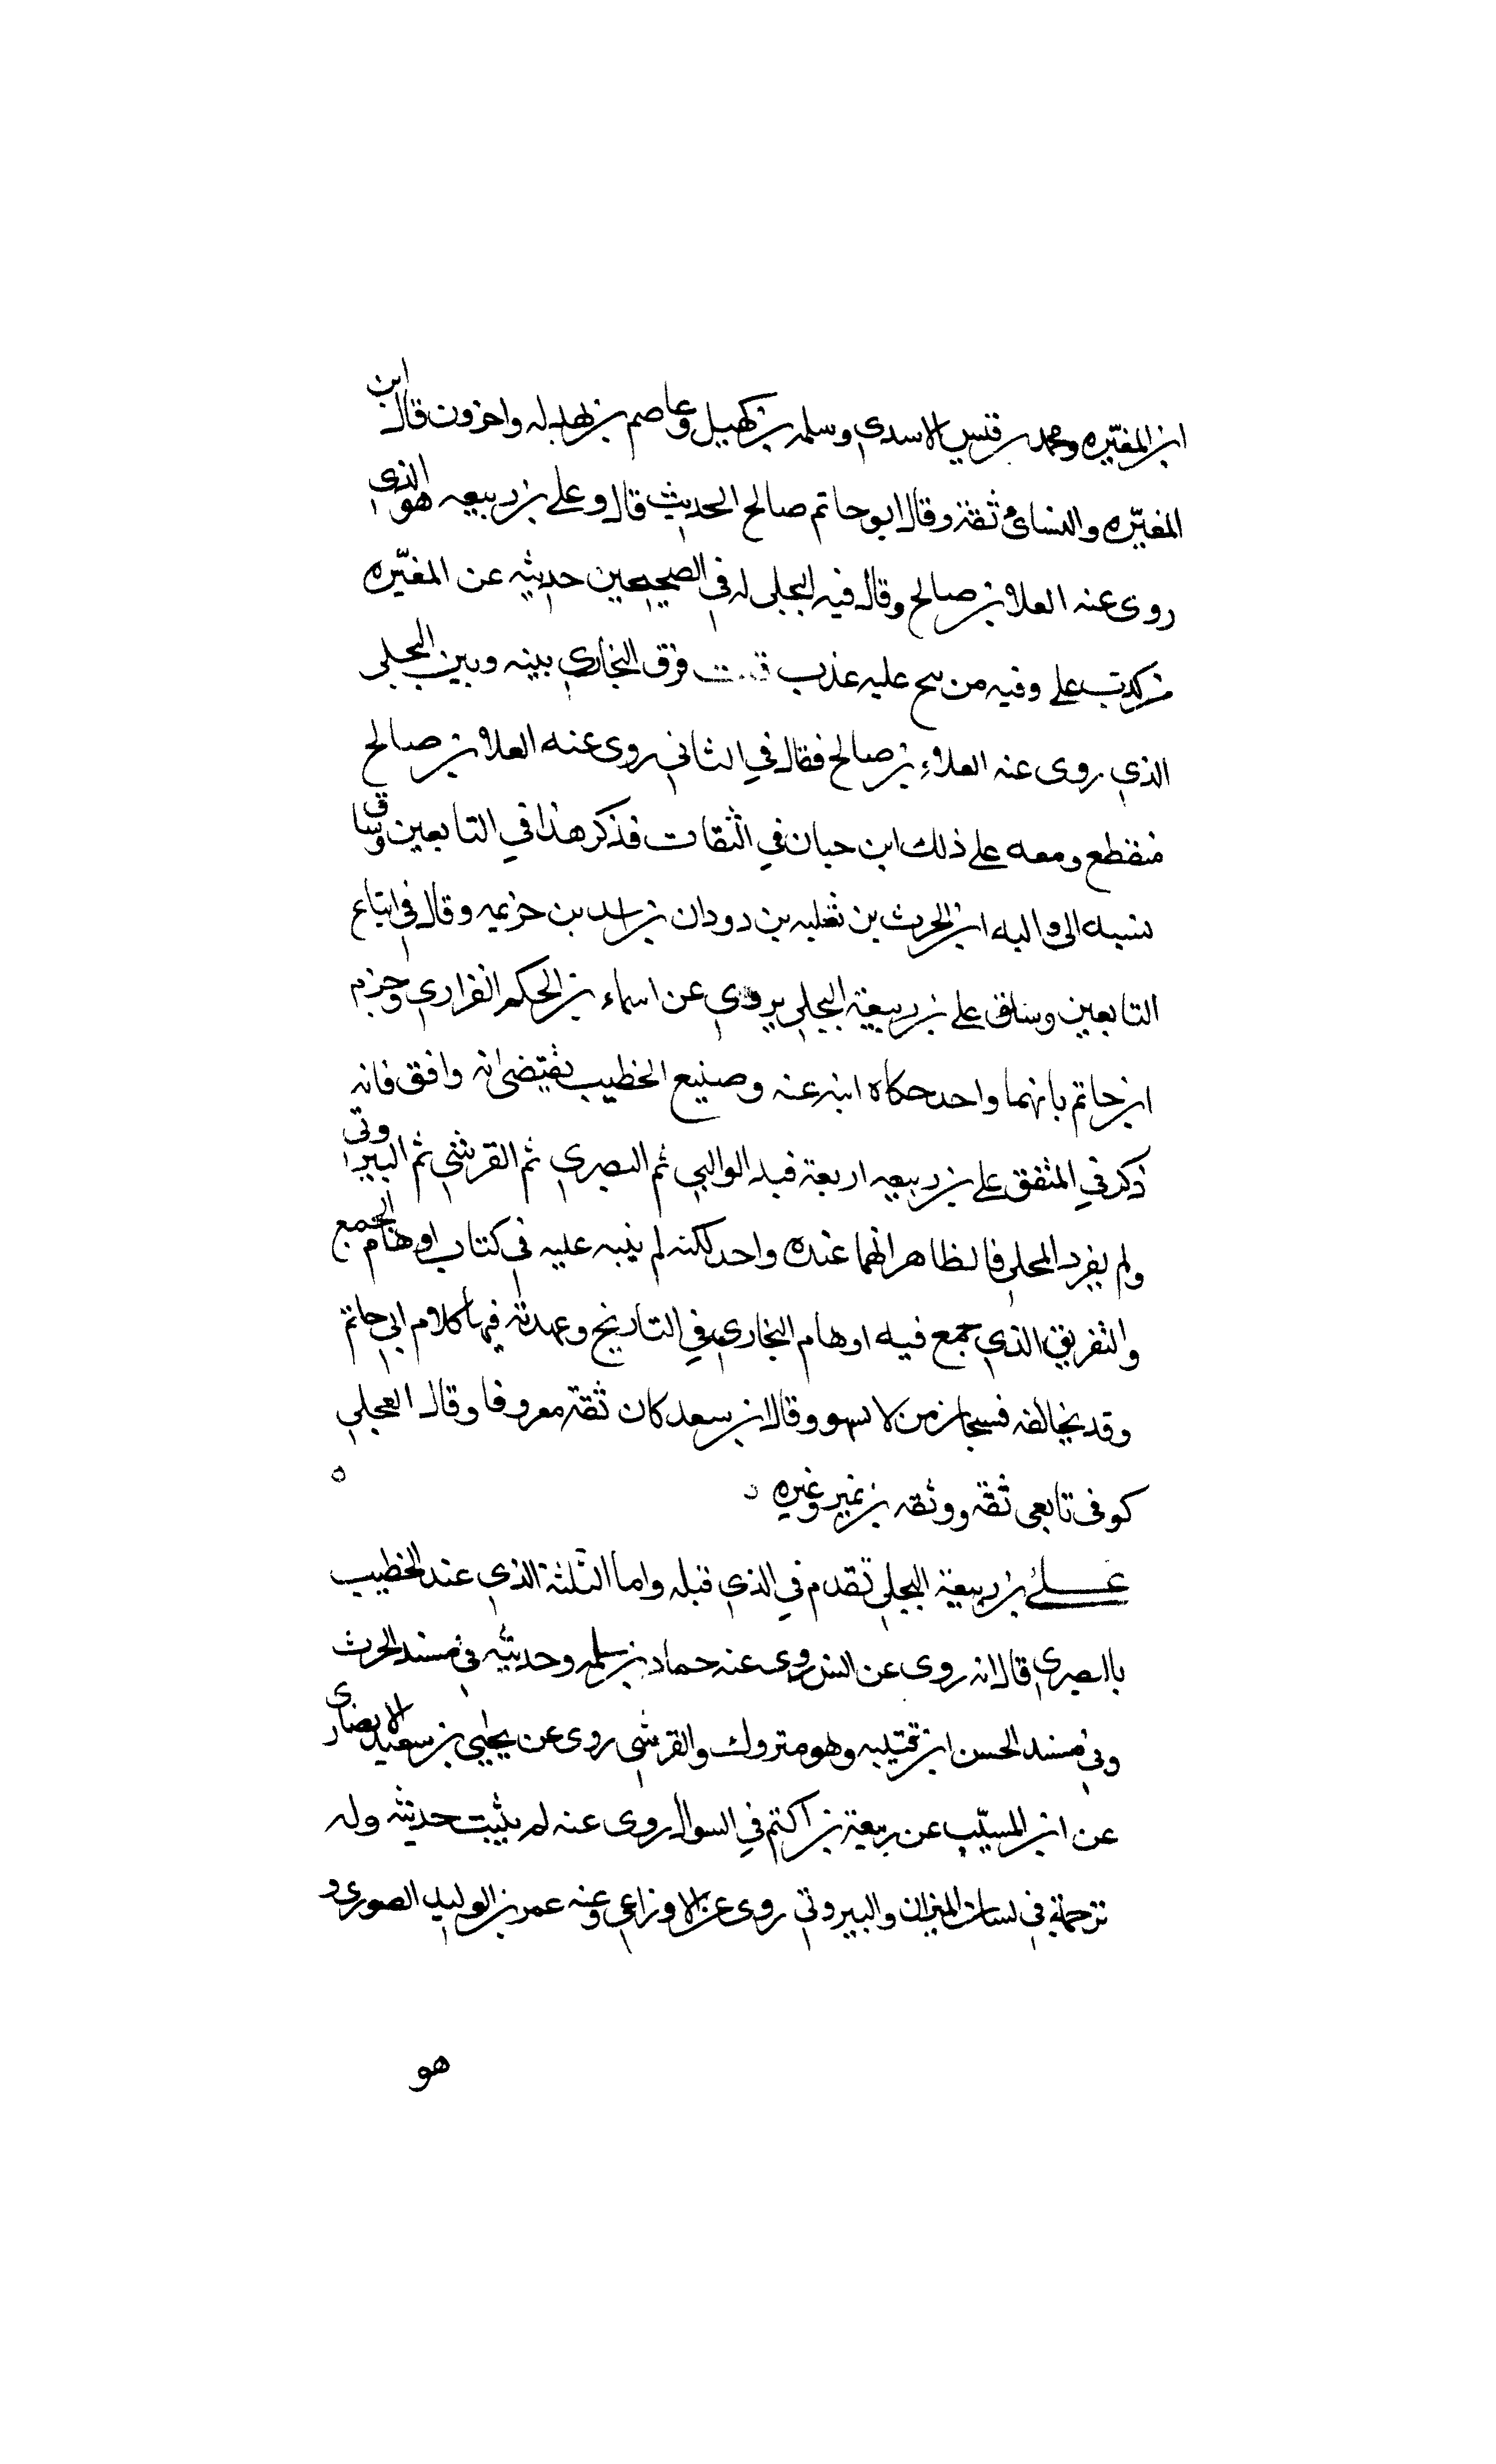 ابن المغيره ومحمد بن قيس الاسدي وسلمه بن كهيل وعاصم بن بهدله واخرون قال ابن
المغيره والنسائي ثقة وقال ابو حاتم صالح الحديث قال وعلي بن ربيعه هو الذي
روى عنه العلا بن صالح وقال فيه البجلي له في الصحيحين حديثه عن المغيره
من كذب علي وفيه من نيح عليه عذب فرق البخاري بينه وبين البجلي
الذي روى عنه العلاء بن صالح فقال في الثاني روى عنه العلا بن صالح
منقطع ومعه على ذلك ابن حبان في الثقات فذكر هذا في التابعين وساق
نسبه الى والبه ابن الحرث بن ثعلبه بن دودان بن اسد بن خزيمه وقال في اتباع
التابعين علي بن ربيعة البجلي يروي عن اسماء بن الحكم الفزاري وجزم
ابن حاتم بانهما واحد حكاه ابنه عنه وصنيع الخطيب يقتضي انه وافق فانه
ذكر في المتفق علي بن ربيعه اربعة فبدا الوالبي ثم البصري ثم القرشي ثم البيروتي
ولم يفرد البجلي فالظاهر انهما عنده واحد لكنه لم ينبه عليه في كتاب اوهام الجمع
والتفريق الذي جمع فيه اوهام البخاري في التاريخ وعمدته فيها كلام ابي حاتم
وقد يخالفه فسبحان من لا يسهو وقال ابن سعد كان ثقة معروفا وقال العجلي
كوفى تابعى ثقه ووثقه بن نمير وغيره
علي بن ربيعة البجلي تقدم في الذي قبله واما الثلثة الذي عند الخطيب
باالصري قال انه روى عن انس روى عنه حماد بن سلمه وحديثه في مسند الحرث
وفي مسند الحسن ابن قتيبه وهو متروك والقرشى روى عن يحيى بن سعيد الانصارى
عن ابن المسيب عن ربيعة بن اكثم في السواك روى عنه لم يثبت حديثه وله
ترجمة في لسان الميزان والبيروتي روى عن الاوزاعي وعنه عمر بن الوليد الصوري و
هو